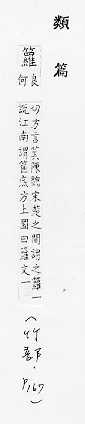 類篇
籮
良
何
切方言箕陳魏宋楚之間謂之籮一
說江南謂筐底方上圜曰籮文一
(竹部·P167)